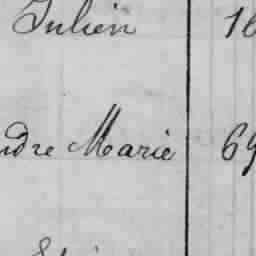 Julien 16
ndre Marie 69